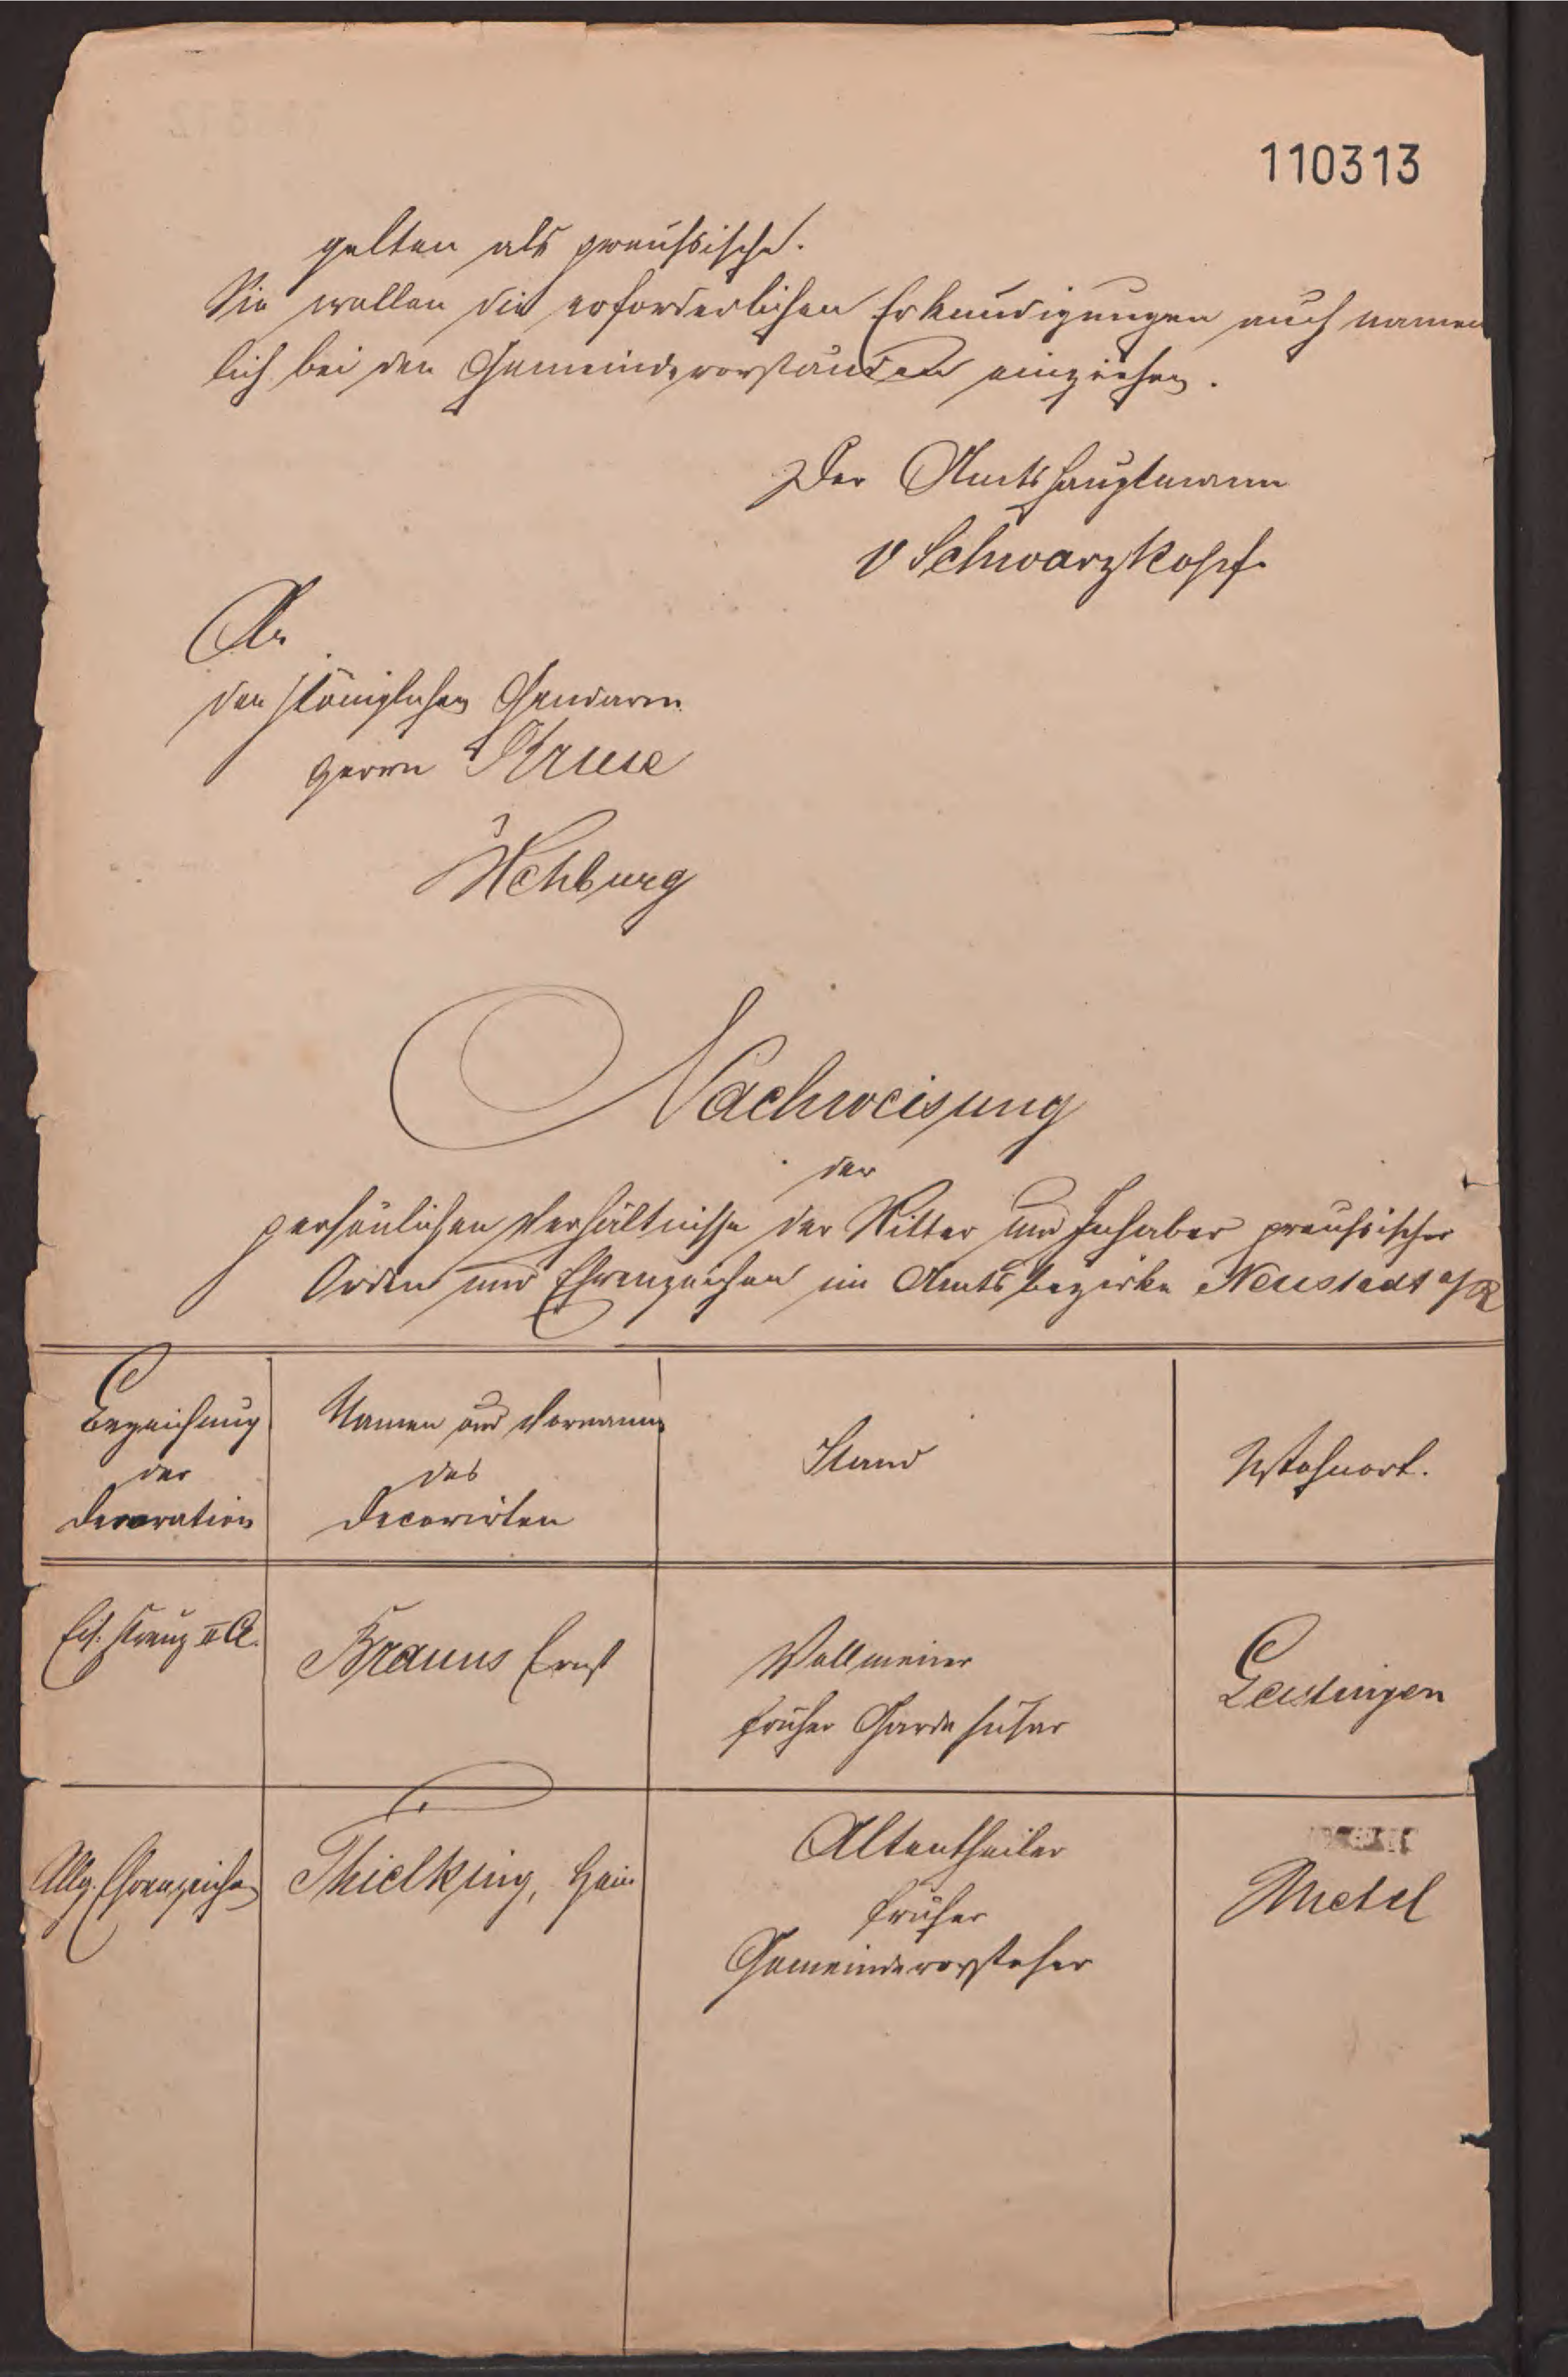 110313
gelten als preußische.
Sie wollen die erforderlichen Erkundigungen auch namen
lich bei den Gemeindevorständen einziehen.
Der Amtshauptmann
v Schwarzkopf.
An
den Königlichen Gendarm
Herrn Kruse
Rehburg
Nachweisung
der
persönlichen Verhältnisse der Ritter und Inhaber preußischer
Orden und Ehrenzeichen im Amtsbezirke Neustadt a/R
Bezeichnung
der
Decoration
Namen und Vornamen
des
Decorirten
Stand
Wohnort.
Eis. Kreuz II Cl.
Brauns Ernst
Vollmeier
früher Garde Husar
Leistlingen
Allg. Ehrenzeichen
Thielking, Hein
Altentheiler
früher
Gemeindevorsteher
Metel